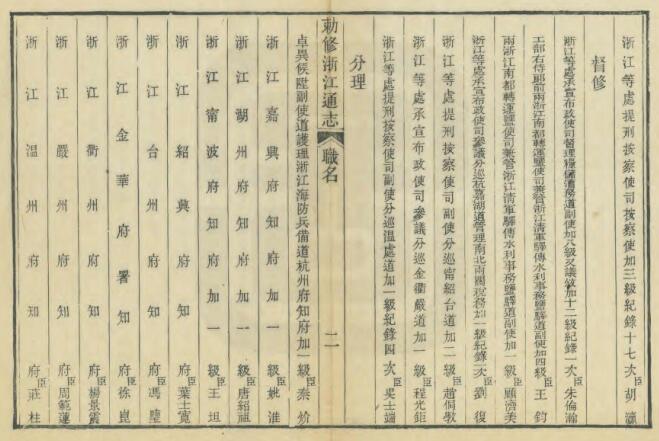 浙江等處提刑按察使司按察使加三級紀錄十七次臣胡瀛
督修
浙江等處承宣布政使司督理糧儲漕務道副使加八級又議敘加十二級紀錄一次臣朱倫瀚
工部右侍郎前兩浙江南都轉運鹽使司兼管浙江清軍驛傳水利事務鹽驛道副使加四級臣王鈞
兩浙江南都轉運鹽使司兼管浙江清軍驛傳水利事務鹽驛道副使加一級臣顧濟美
浙江等處承宣布政使司參議分巡杭嘉湖道管理南北兩關稅務加一級紀錄三次臣劉復
浙江等處提刑按察使司副使分巡甯紹台道加二級臣趙侗斆
浙江等處承宣布政使司參議分巡金衢嚴道加一級臣程光鉅
浙江等處提刑按察使司副使分巡溫處道加一級紀錄四次臣吳士端
分理
勅修浙江通志 職名 二
卓異候陞副使道護理浙江海防兵備道杭州府知府加一級臣秦炌
浙江嘉興府知府加一級臣 淮
浙江湖州府知府加一級臣唐紹祖
浙江甯波府知府加一級臣王坦
浙江紹興府知府臣葉士寬
浙江台州府知府臣馮
浙江金華府署知府臣徐崑
浙江衢州府知府臣楊景震
浙江嚴州府知府臣周範蓮
浙江溫州府知府臣莊柱